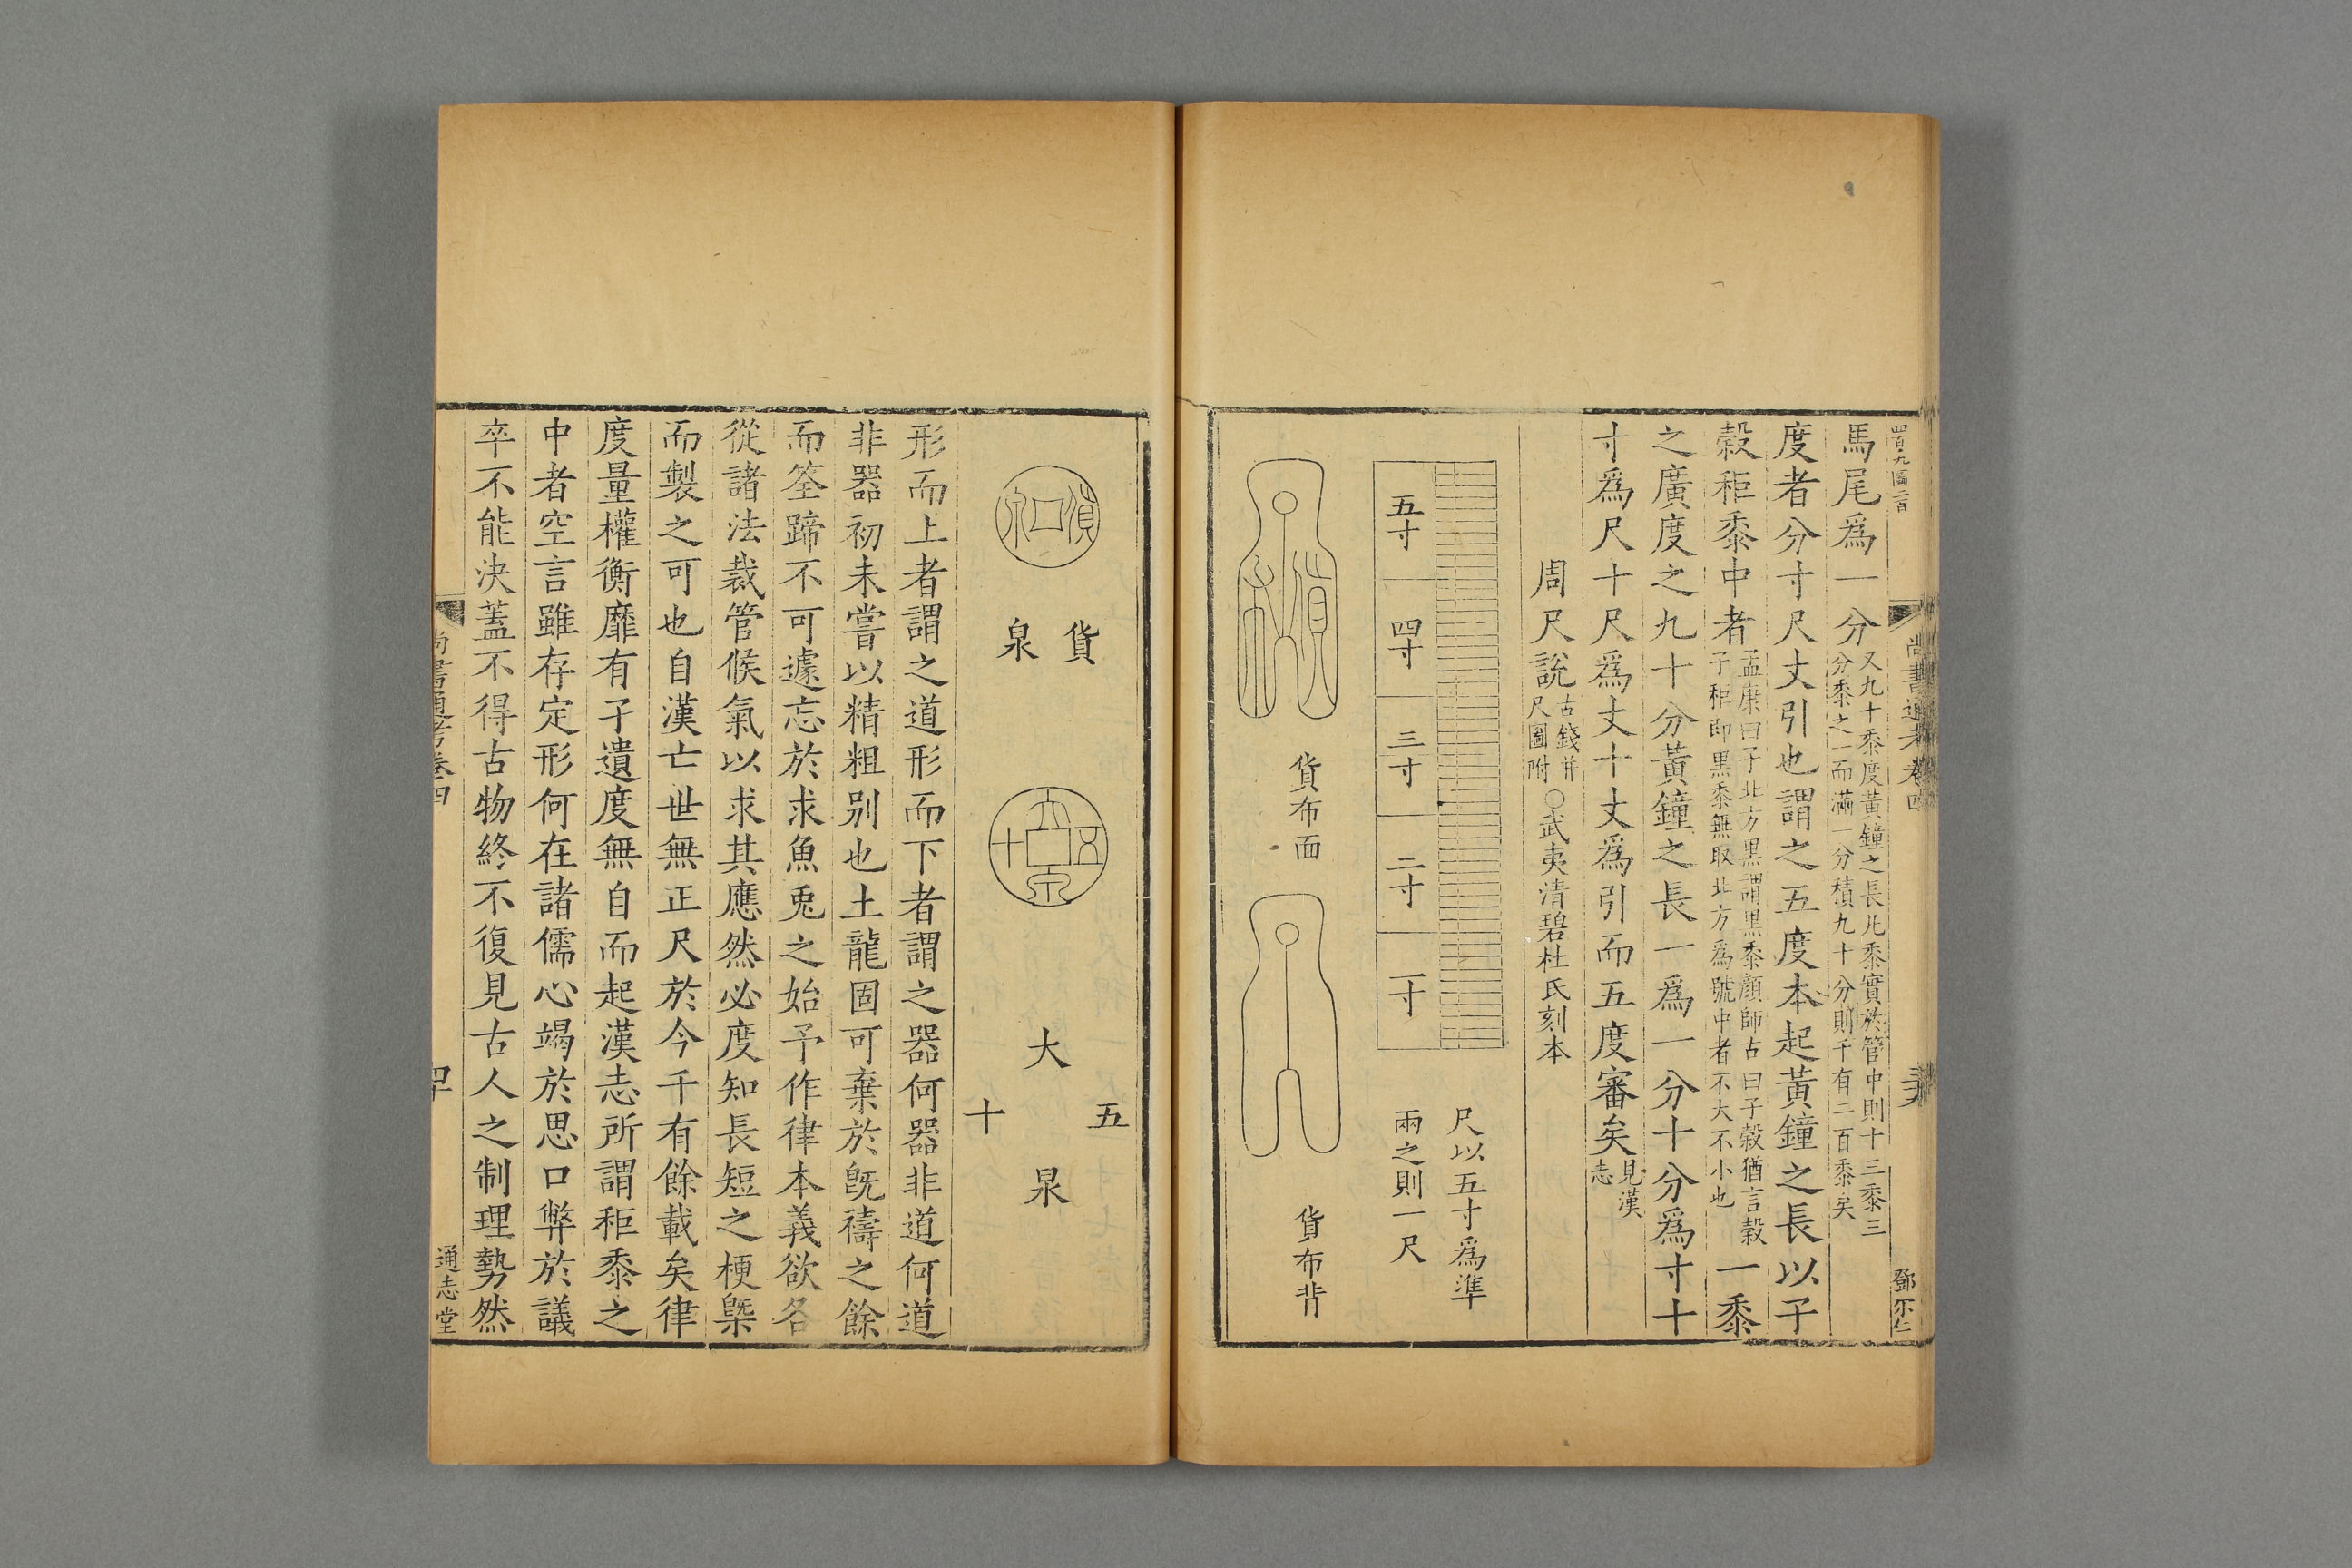 馬尾爲一分又九十黍度黃鐘之長凡黍實於管中則十三黍三
分黍之一而滿一分積九十分則千有二百黍矣
度者分寸尺丈引也謂之五度本起黃鐘之長以子
穀秬黍中者孟康曰子北方黑謂黑黍顔師古曰子穀猶言穀
子秬即黑黍無取北方爲號中者不大不小也一黍
之廣度之九十分黃鐘之長一爲一分十分爲寸十
寸爲尺十尺爲丈十丈爲引而五度審矣見漢
志
周尺說古錢并
尺圖附○武夷清碧杜氏刻本
尺以五寸爲準
兩之則一尺
五寸
四寸
三寸
二寸
一寸
貨布
貨布面
貨布背
尚書通考卷四
鄧尔仁
貨泉
貨泉
大泉五十
大泉
五十
形而上者謂之道形而下者謂之器何器非道何道
非器初未嘗以精粗別也土龍固可棄於旣禱之餘
而筌蹄不可遽忘於求魚兎之始予作律本義欲各
從諸法裁管候氣以求其應然必度知長短之梗槩
而製之可也自漢亡世無正尺於今千有餘載矣律
度量權衡靡有孑遺度無自而起漢志所謂秬黍之
中者空言雖存定形何在諸儒心竭於思口弊於議
卒不能決蓋不得古物終不復見古人之制理勢然
尚書通考卷四
四十
通志堂